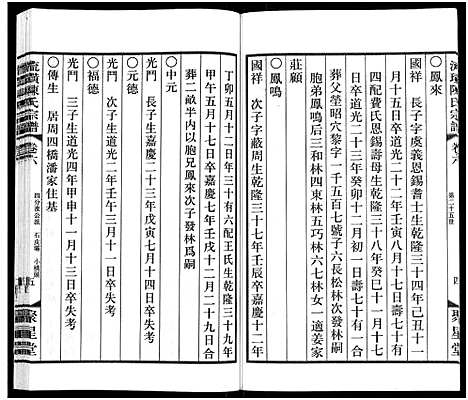 流璜陳氏宗譜
卷六
第二十五世
四
聚星堂
○鳳來
國祥 長子字虞義恩錫耆士生乾隆三十四年己丑十一
月十五日卒道光二十二年壬寅八月十七日壽七十有
四配費氏恩錫壽母生乾隆三十八年癸巳十一月十
六日卒道光二十三年癸卯十二月初一日壽七十有一
葬父塋昭穴黎字一千五百七號子六長松林次發林嗣
胞弟鳳鳴后三和林四東林五巧林六七林女一適姜家
莊顧
○鳳鳴
國祥 次子字蔽周生乾隆三十七年壬辰卒嘉慶十二年
丁卯五月十二日年三十有六配王氏生乾隆三十九年
甲午五月十七日卒嘉慶七年壬戌十二月二十九日合
葬二畝半內以胞兄鳳來次子發林爲嗣
○中元
光鬥 長子生嘉慶二十三年戊寅七月十四日卒失考
○元德
光鬥 次子生道光二年壬午三月十一日卒失考
○福德
光鬥 三子生道光四年甲申十一月十三日卒失考
○傳生 居周四橋潘家住基
流璜陳氏宗譜
卷六
四分淮公派 石良瑤 小橋頭
五
聚星堂